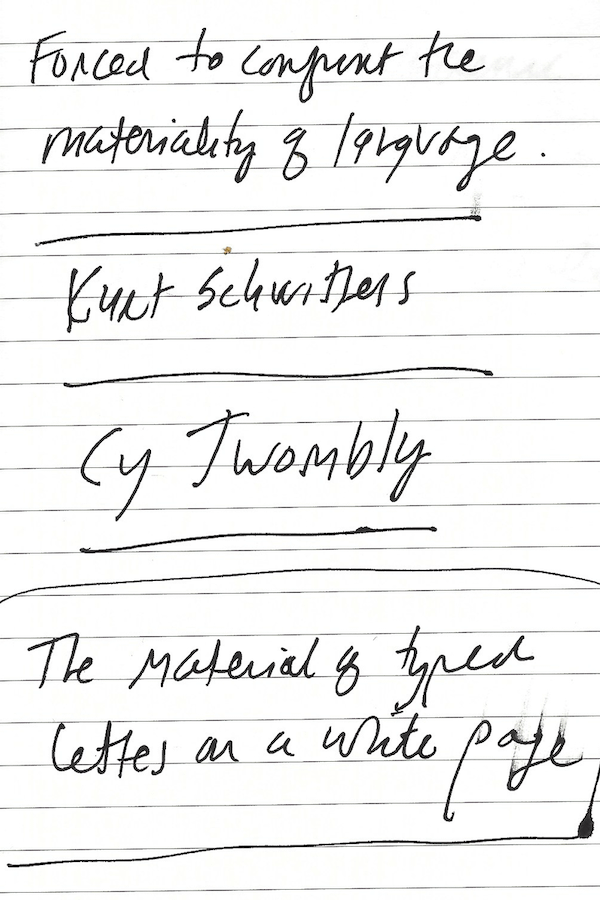 Forced to confront the
materiality of language.
Kurt Schwitters
Cy Twombly
The material of typed
letters on a white page